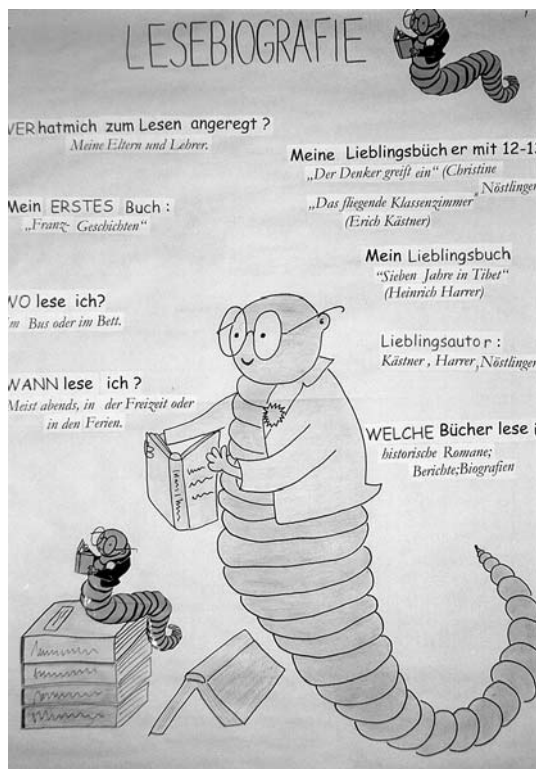 LESEBIOGRAFIE
WER hatmich zum Lesen angeregt ?
Meine Eltern und Lehrer.
Mein ERSTES Buch :
„Franz- Geschichten“
WO lese ich?
im Bus oder im Bett.
WANN lese ich ?
Meist abends, in der Freizeit oder
in den Ferien.
Meine Lieblingsbüch er mit 12-13
„Der Denker greift ein“ (Christine
Nöstlinger
„Das fliegende Klassenzimmer“
(Erich Kästner)
Mein Lieblingsbuch
“Sieben Jahre in Tibet“
(Heinrich Harrer)
Lieblingsautor :
Kästner, Harrer, Nöstlinger
WELCHE Bücher lese i
historische Romane;
Berichte;Biografien